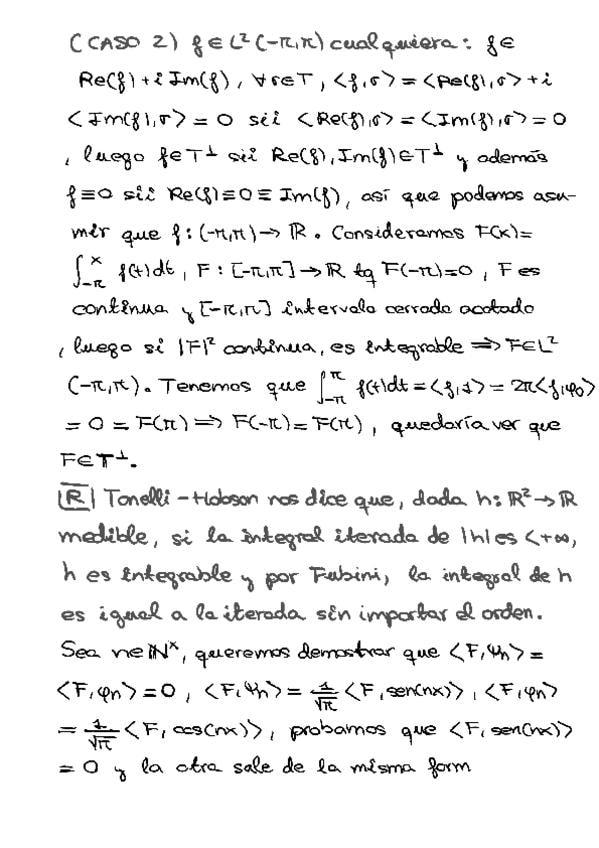 (CASO 2) f ∈ L²(-π,π) cualquiera: f ∈
Re(f)+i Im(f), ∀σ∈T, <f,σ> = <Re(f),σ> + i
<Im(f),σ> = 0 sii <Re(f),σ> = <Im(f),σ> = 0
, luego f∈T^⊥ sii Re(f), Im(f)∈T^⊥ y además
f≡0 sii Re(f)≡0≡Im(f), así que podemos asu-
mir que f: (-π,π)→ℝ. Consideramos F(x)=
∫_{-π}^{x} f(t)dt, F: [-π,π]→ℝ tq F(-π)=0, F es
continua y [-π,π] intervalo cerrado acotado
, luego si |F|² continua, es integrable ⇒ F∈L²
(-π,π). Tenemos que ∫_{-π}^{π} f(t)dt = <f,1> = 2π<f,φ₀>
= 0 = F(π) ⇒ F(-π) = F(π), quedaría ver que
F∈T^⊥.
[R] Tonelli-Hobson nos dice que, dada h: ℝ²→ℝ
medible, si la integral iterada de |h| es <+∞,
h es integrable y por Fubini, la integral de h
es igual a la iterada sin importar el orden.
Sea n∈ℕ^x, queremos demostrar que <F,ψₙ> =
<F,φₙ> = 0, <F,ψₙ> = 1/√π <F, sen(nx)>, <F,φₙ>
= 1/√π <F, cos(nx)>, probamos que <F, sen(nx)>
= 0 y la otra sale de la misma form